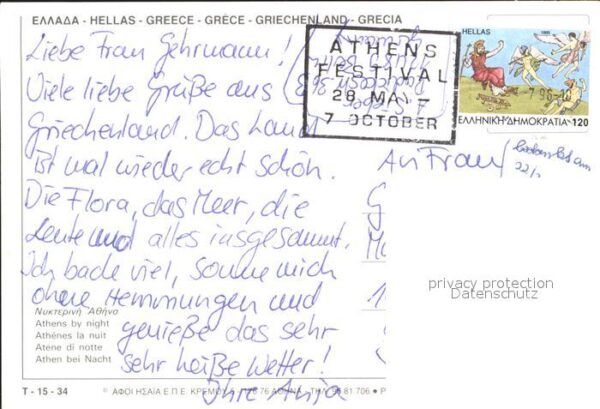 ΕΛΛΑΔΑ - HELLAS - GREECE - GRÈCE - GRIECHENLAND - GRECIA
Liebe Frau Gehrmann!
Viele liebe Grüße aus
Griechenland. Das Land
ist mal wieder echt schön.
Die Flora, das Meer, die
Leute und alles insgesammt.
Ich bade viel, sonne mich
ohne Hemmungen und
genieße das sehr
sehr heiße Wetter!
Ihre Anja
Νυκτερινή Αθήνα
Athens by night
Athènes la nuit
Atene di notte
Athen bei Nacht
T - 15 - 34
© ΑΦΟΙ ΗΣΑΙΑ Ε.Π.Ε. ΚΡΕΜΟΥ
76 ΑΘΗΝΑ - ΤΗΛ. 95 81 706 • P
ATHENS
FESTIVAL
28 MAY -
7 OCTOBER
HELLAS
7 96
ΕΛΛΗΝΙΚΗ ΔΗΜΟΚΡΑΤΙΑ 120
An Frau
22/
G
1
privacy protection
Datenschutz